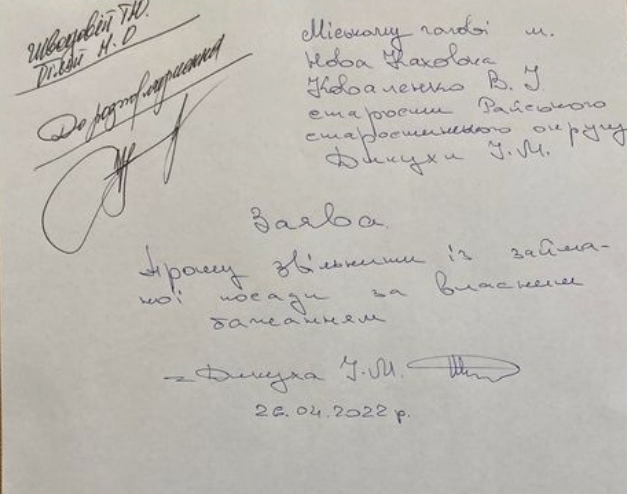 До розгляду
Міському голові м.
Нова Каховка
Коваленко В. І.
старости Райського
старостинського округу
Дикухи І. М.
Заява
Прошу звільнити із займа-
ної посади за власним
бажанням
Дикуха І. М.
26.04.2022 р.